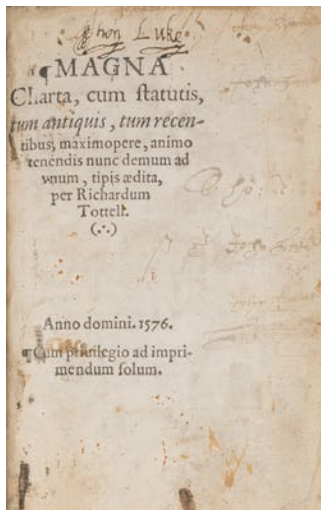 Jhon Luke
¶MAGNA
Charta, cum ſtatutis,
tum antiquis, tum recen-
tibus, maximopere, animo
tenendis nunc demum ad
vnum, tipis ædita,
per Richardum
Tottell.
(∴)
Anno domini. 1576.
¶Cum priuilegio ad impri-
mendum ſolum.